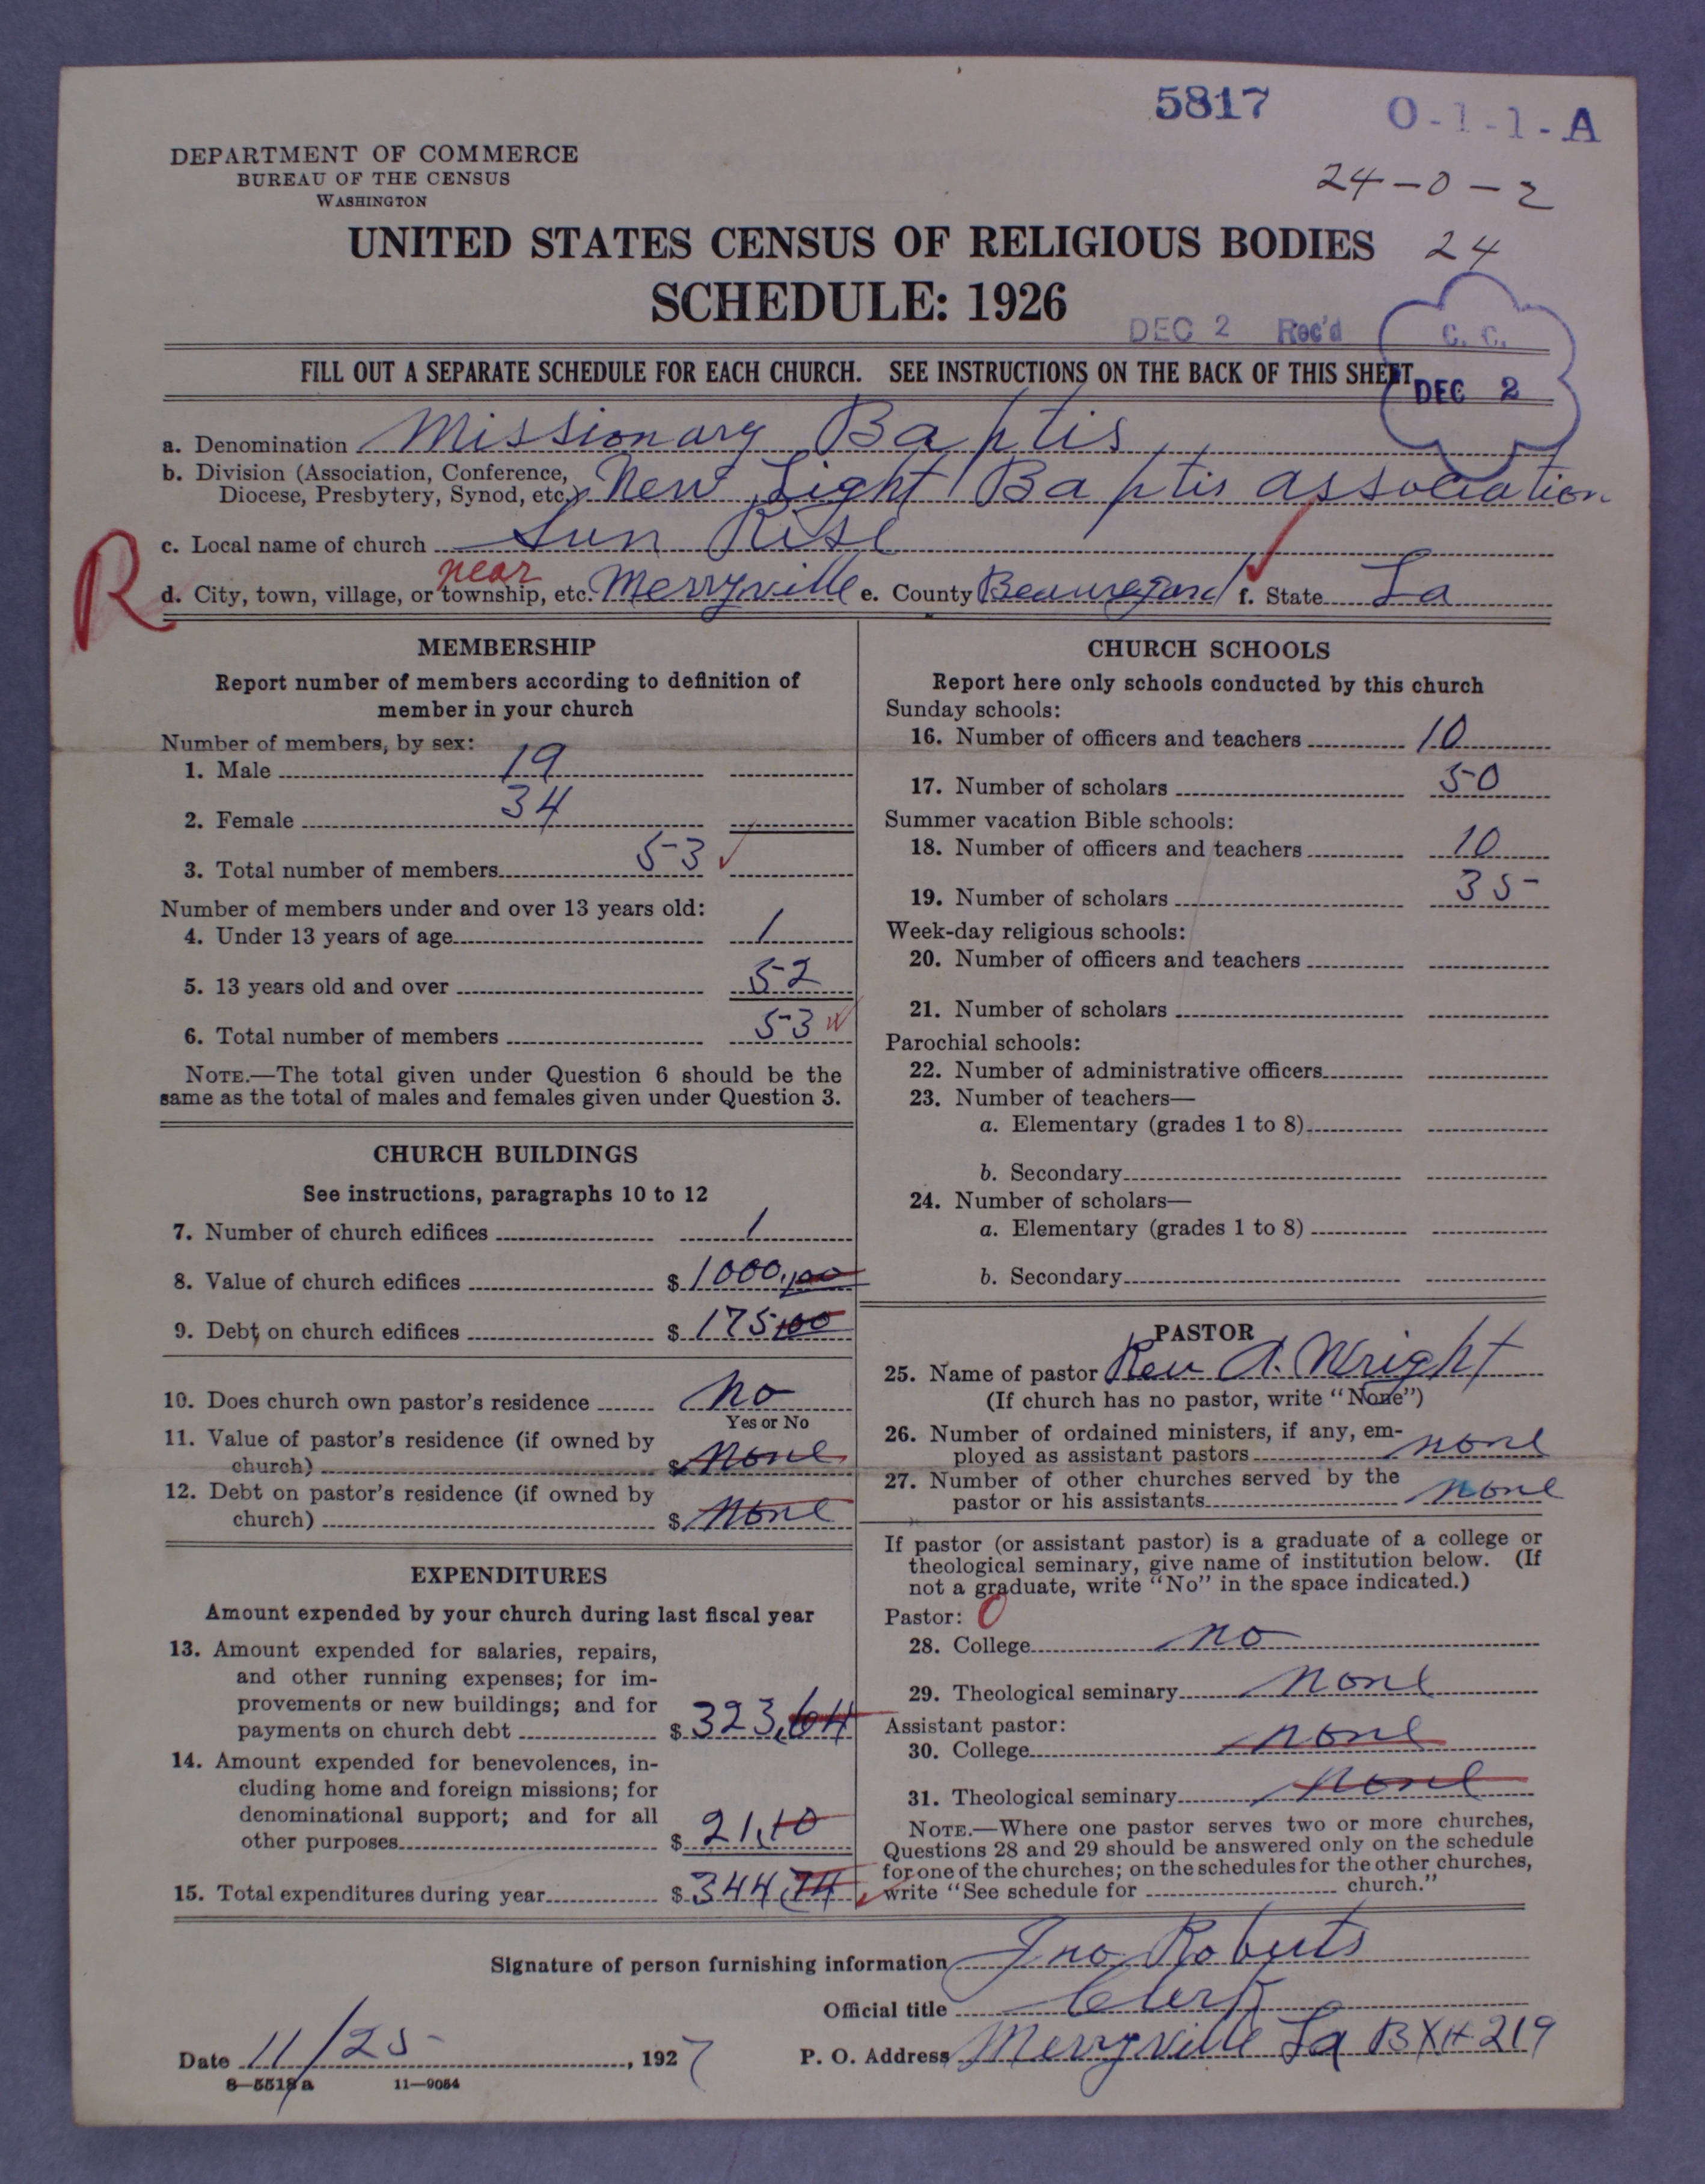 5817
0-1-1-A
DEPARTMENT OF COMMERCE
BUREAU OF THE CENSUS
WASHINGTON
24-0-2
UNITED STATES CENSUS OF RELIGIOUS BODIES
24
SCHEDULE: 1926
DEC 2 Rec'd
C. C.
DEC 2
FILL OUT A SEPARATE SCHEDULE FOR EACH CHURCH. SEE INSTRUCTIONS ON THE BACK OF THIS SHEET
a. Denomination Missionary Baptis
b. Division (Association, Conference,
Diocese, Presbytery, Synod, etc.) New Light Baptis association
c. Local name of church Sun Rise
R
near
d. City, town, village, or township, etc. Merryville e. County Beauregard f. State La
MEMBERSHIP
Report number of members according to definition of
member in your church
Number of members, by sex:
1. Male 19
2. Female 34
3. Total number of members 53
Number of members under and over 13 years old:
4. Under 13 years of age 1
5. 13 years old and over 52
6. Total number of members 53
NOTE.—The total given under Question 6 should be the
same as the total of males and females given under Question 3.
CHURCH BUILDINGS
See instructions, paragraphs 10 to 12
7. Number of church edifices 1
8. Value of church edifices $ 1000.00
9. Debt on church edifices $ 175.00
10. Does church own pastor's residence no
Yes or No
11. Value of pastor's residence (if owned by
church) $ none
12. Debt on pastor's residence (if owned by
church) $ none
EXPENDITURES
Amount expended by your church during last fiscal year
13. Amount expended for salaries, repairs,
and other running expenses; for im-
provements or new buildings; and for
payments on church debt $ 323.64
14. Amount expended for benevolences, in-
cluding home and foreign missions; for
denominational support; and for all
other purposes $ 21.10
15. Total expenditures during year $ 344.74
CHURCH SCHOOLS
Report here only schools conducted by this church
Sunday schools:
16. Number of officers and teachers 10
17. Number of scholars 50
Summer vacation Bible schools:
18. Number of officers and teachers 10
19. Number of scholars 35
Week-day religious schools:
20. Number of officers and teachers
21. Number of scholars
Parochial schools:
22. Number of administrative officers
23. Number of teachers—
a. Elementary (grades 1 to 8)
b. Secondary
24. Number of scholars—
a. Elementary (grades 1 to 8)
b. Secondary
PASTOR
25. Name of pastor Rev A. Wright
(If church has no pastor, write "None")
26. Number of ordained ministers, if any, em-
ployed as assistant pastors none
27. Number of other churches served by the
pastor or his assistants none
If pastor (or assistant pastor) is a graduate of a college or
theological seminary, give name of institution below. (If
not a graduate, write "No" in the space indicated.)
Pastor: 0
28. College no
29. Theological seminary none
Assistant pastor:
30. College none
31. Theological seminary none
NOTE.—Where one pastor serves two or more churches,
Questions 28 and 29 should be answered only on the schedule
for one of the churches; on the schedules for the other churches,
write "See schedule for church."
Signature of person furnishing information Jno Roberts
Official title Clerk
Date 11/25, 1927
P. O. Address Merryville La BX# 219
8—5518 a 11—9054